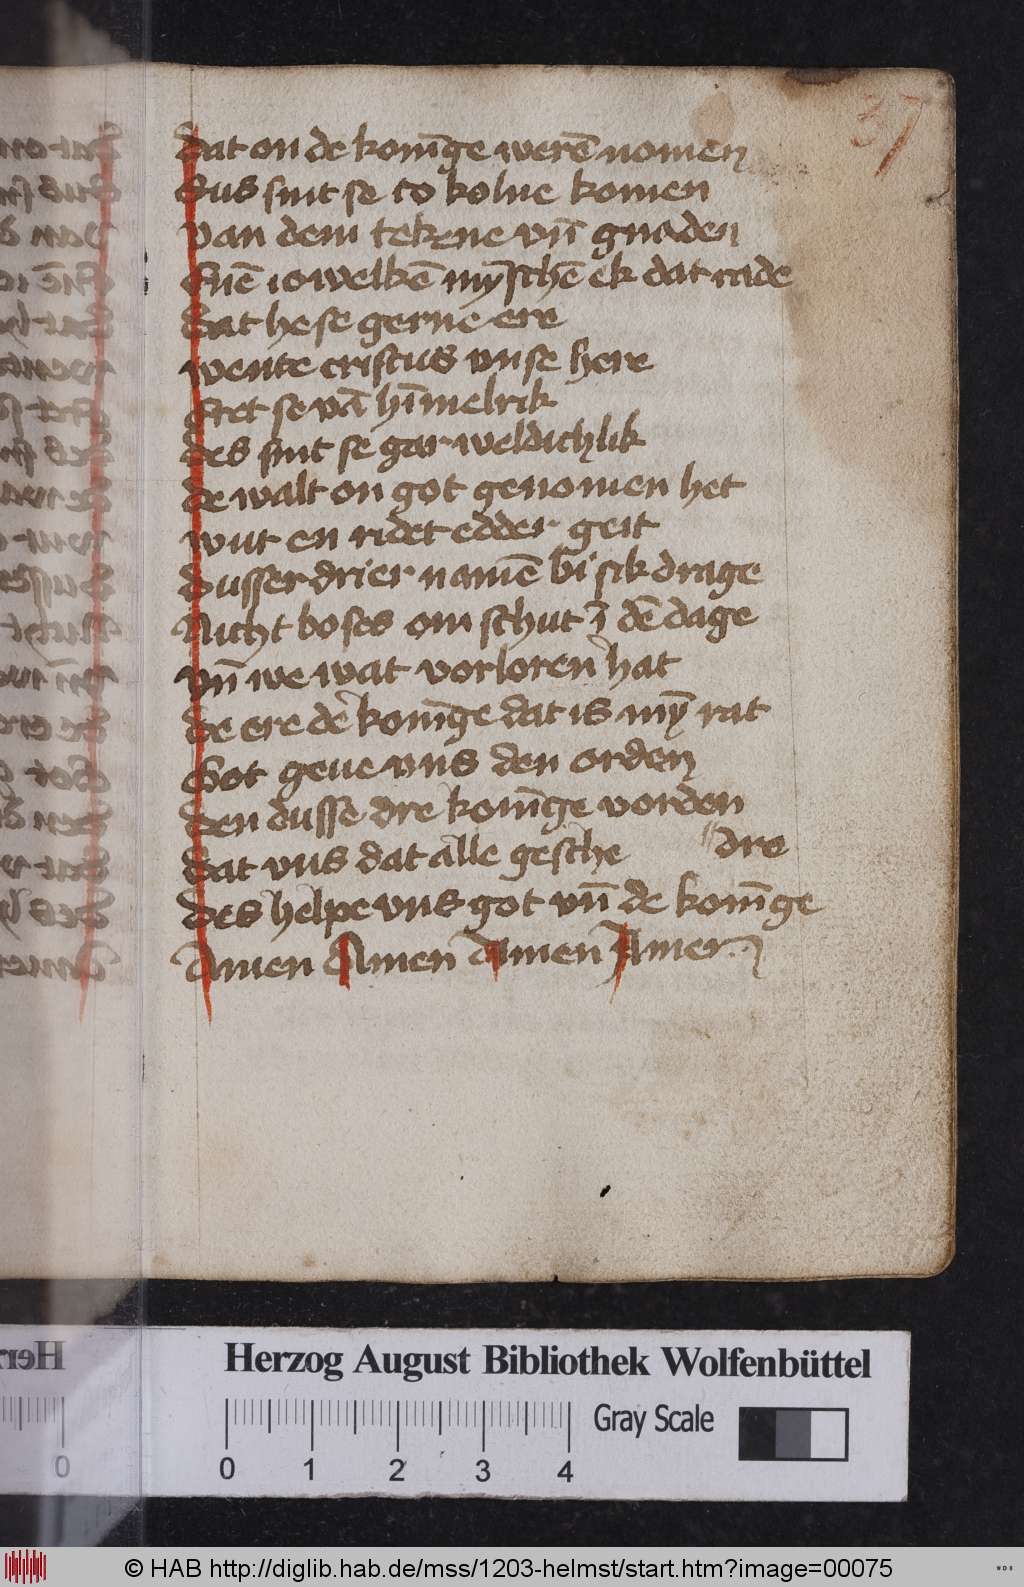 37
dat on de konīge werē nomen
Sus sint se to kolne komen
van dem tekene vn̄ gnaden
Enē iowelkē mȳschē ek dat rade
dat he se gerne ere
wente cristus vnse here
Eret se vā hīmelrik
des sint se gar weldichlik
de walt on got genomen het
wut en ridet edder geit
dusser drier namē bi sik drage
Nicht boses om schut ī dē dage
vn̄ we wat vorloren hat
de ere de konīge dat is mȳ rat
Got geue vns den orden
den dusse dre konīge vorden
dat vns dat alle gesche
dre
des helpe vns got vn̄ de konīge
Amen Amen Amen Amen
Herzog August Bibliothek Wolfenbüttel
Gray Scale
0 1 2 3 4
© HAB http://diglib.hab.de/mss/1203-helmst/start.htm?image=00075